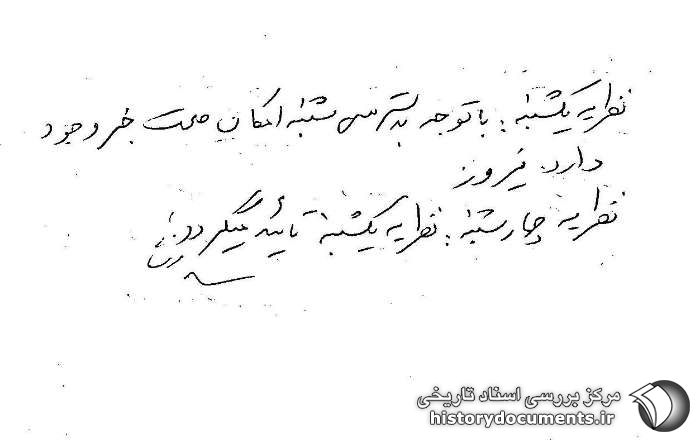 نظریه یکشنبه: با توجه بدسترسی شنبه امکان صحت خبر وجود
دارد. فیروز
نظریه چهارشنبه: نظریه یکشنبه تأیید میگردد.
مرکز بررسی اسناد تاریخی
historydocuments.ir